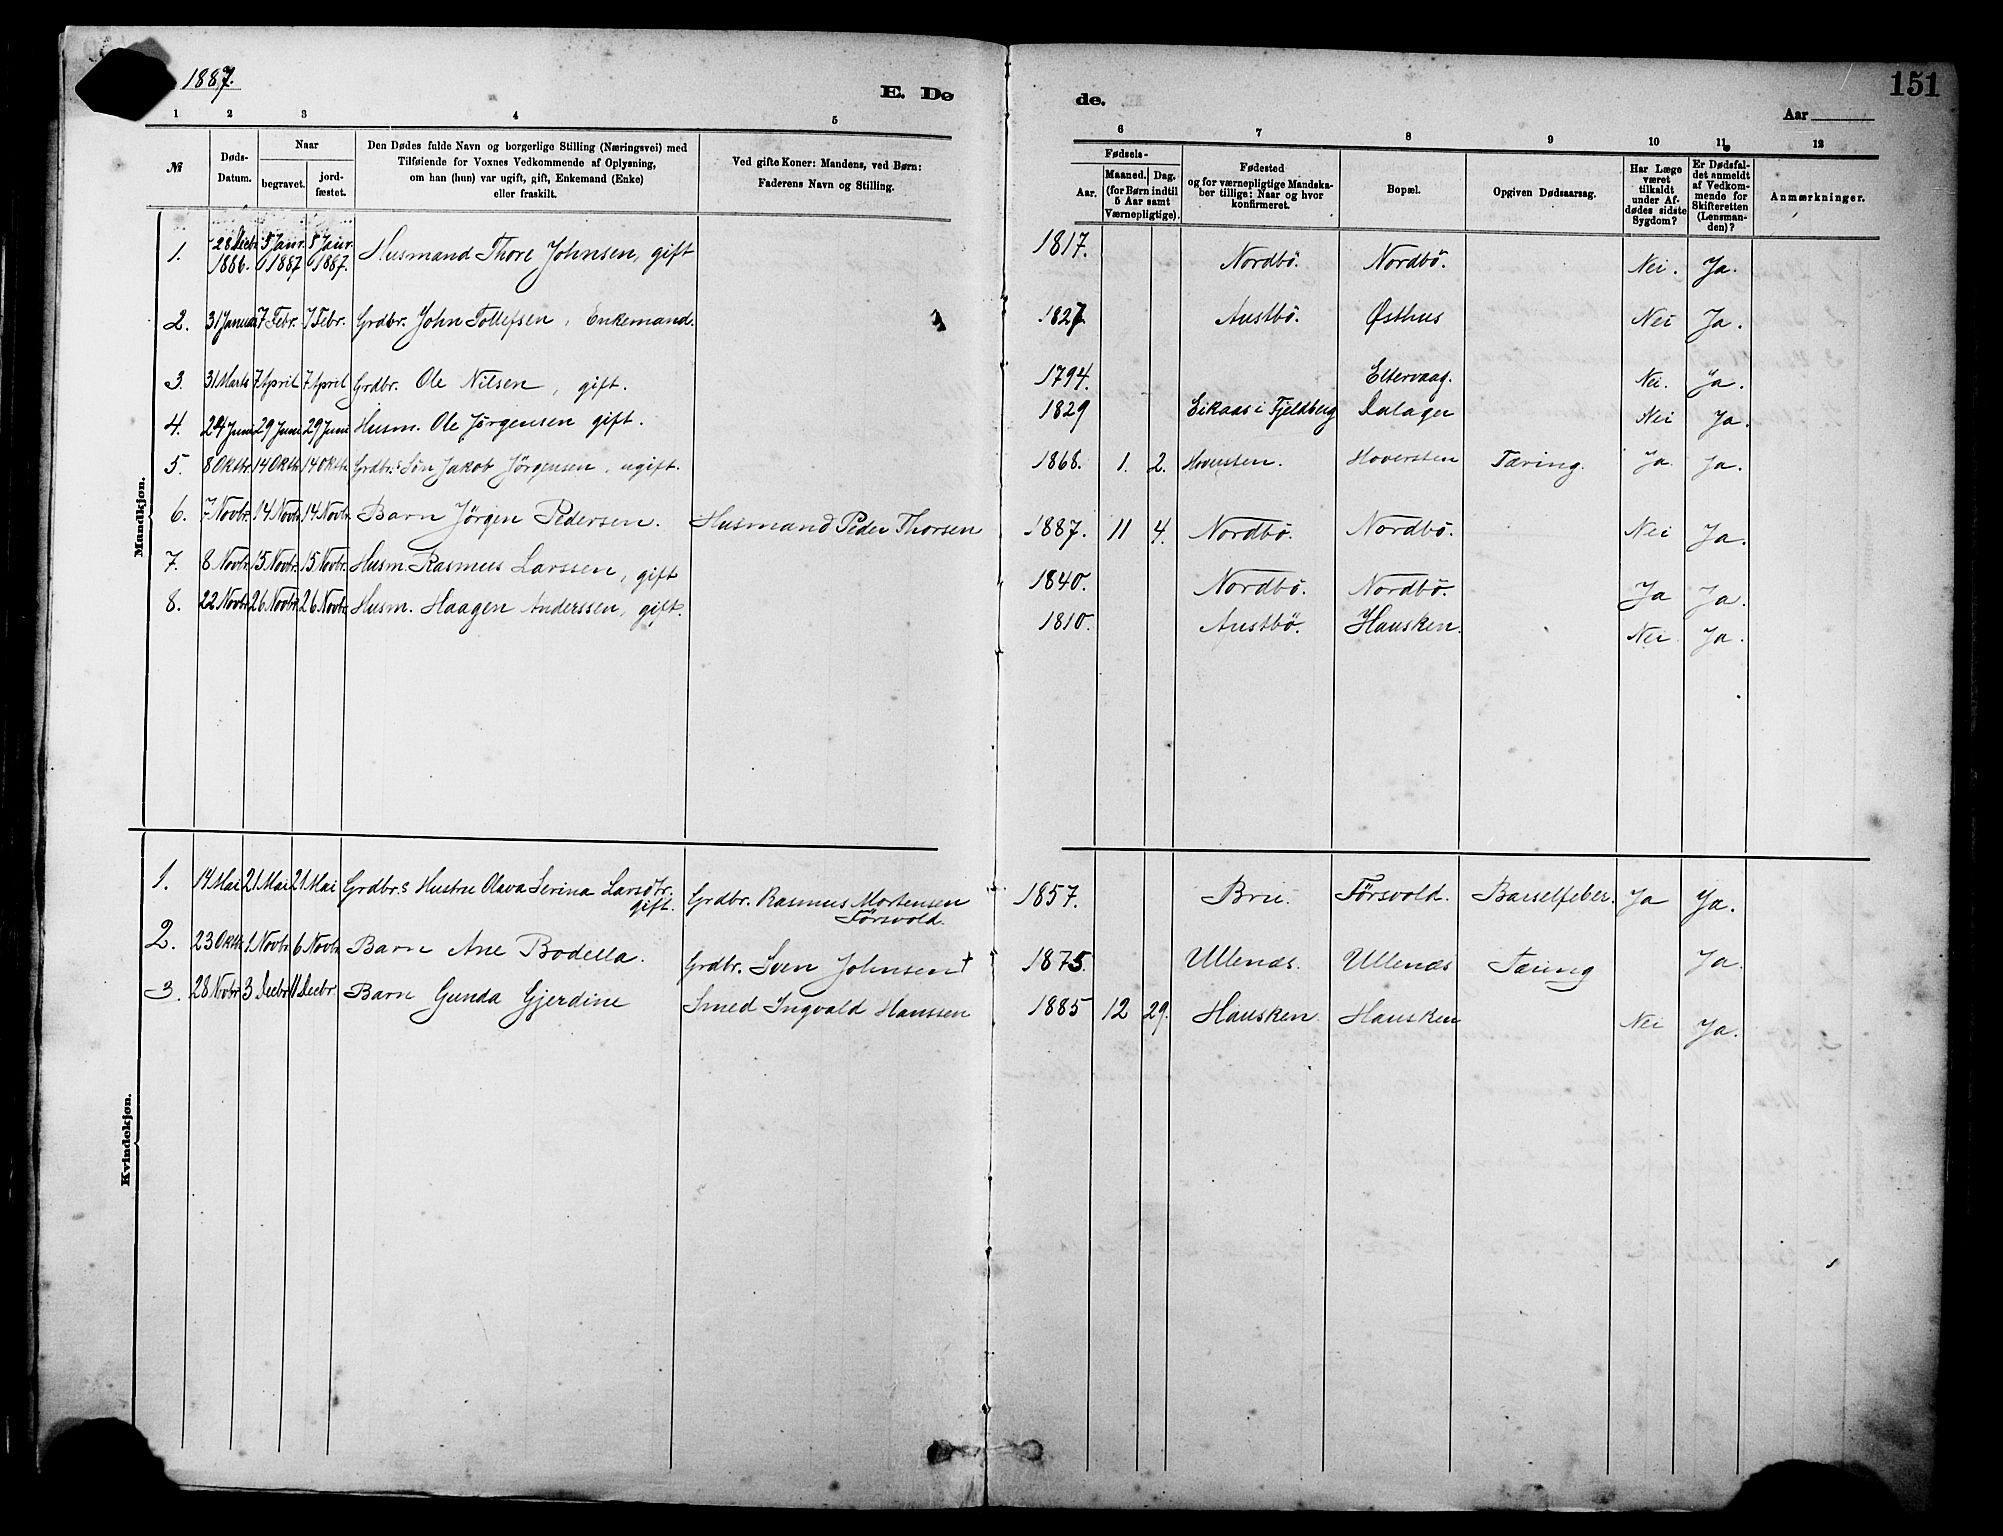 1887.
E. Dø
de.
151
Aar
1 2 3 4 5 6 7 8 9 10 11 12
№
Døds-Datum.
Naar
begravet.
jord-fæstet.
Den Dødes fulde Navn og borgerlige Stilling (Næringsvei) med
Tilføiende for Voxnes Vedkommende af Oplysning,
om han (hun) var ugift, gift, Enkemand (Enke)
eller fraskilt.
Ved gifte Koner: Mandens, ved Børn:
Faderens Navn og Stilling.
Fødsels-
Aar.
Maaned. Dag.
(for Børn indtil
5 Aar samt
Værnepligtige).
Fødested
og for værnepligtige Mandska-
ber tillige: Naar og hvor
konfirmeret.
Bopæl.
Opgiven Dødsaarsag.
Har Læge
været
tilkaldt
under Af-
dødes sidste
Sygdom?
Er Dødsfal-
det anmeldt
af Vedkom-
mende for
Skifteretten
(Lensman-
den)?
Anmærkninger.
Mandkjøn.
1. 28 Decbr. 1886. 5 Janr. 1887 5 Janr. 1887. Husmand Thore Johnsen, gift 1817. Nordbö. Nordbö. Nei. Ja.
2. 31 Januar 7 Febr. 7 Febr. Grdbr. John Tollefsen, Enkemand. 1827. Austbö. Østhus Nei Ja.
3. 31 Marts 7 April 7 April Grdbr. Ole Nilsen, gift. 1794. Eltervaag. Nei. Ja.
4. 24 Juni 29 Juni 29 Juni Husm. Ole Jörgensen gift. 1829 Eikaas i Fjeldberg Dalager Nei Ja.
5. 8 Oktbr. 14 Oktb. 14 Oktb. Grdbr.s Søn Jakob Jörgensen, ugift. 1868. 1. 2. Hoversten. Hoversten Tæring. Ja. Ja.
6. 7 Novbr. 14 Novb. 14 Novbr. Barn Jörgen Pedersen. Husmand Peder Thorsen 1887. 11 4. Nordbö. Nordbö. Nei Ja.
7. 8 Novbr. 15 Novbr. 15 Novbr. Husm. Rasmus Larssen, gift 1840. Nordbö. Nordbö. Ja Ja.
8. 22 Novbr. 26 Novbr. 26 Novbr. Husm. Haagen Anderssen, gift. 1810. Austbö. Hausken. Nei. Ja.
Kvindekjøn.
1. 14 Mai 21 Mai 21 Mai Grdbr.s Hustru Olava Serina Larsdtr. gift. Grdbr. Rasmus Mortensen Försvold. 1857. Brii Försvold. Barselfeber. Ja Ja.
2. 23 Oktb. 1 Novbr. 6 Novbr. Barn Ane Bodella. Grdbr. Sven Johnsen † 1875. Ullenæs. Ullenæs Tæring Ja.
3. 28 Novbr. 3 Decbr. 11 Decbr. Barn Gunda Gjerdine Smed Ingvald Hanssen 1885 12 29. Hausken. Hausken Nei Ja.